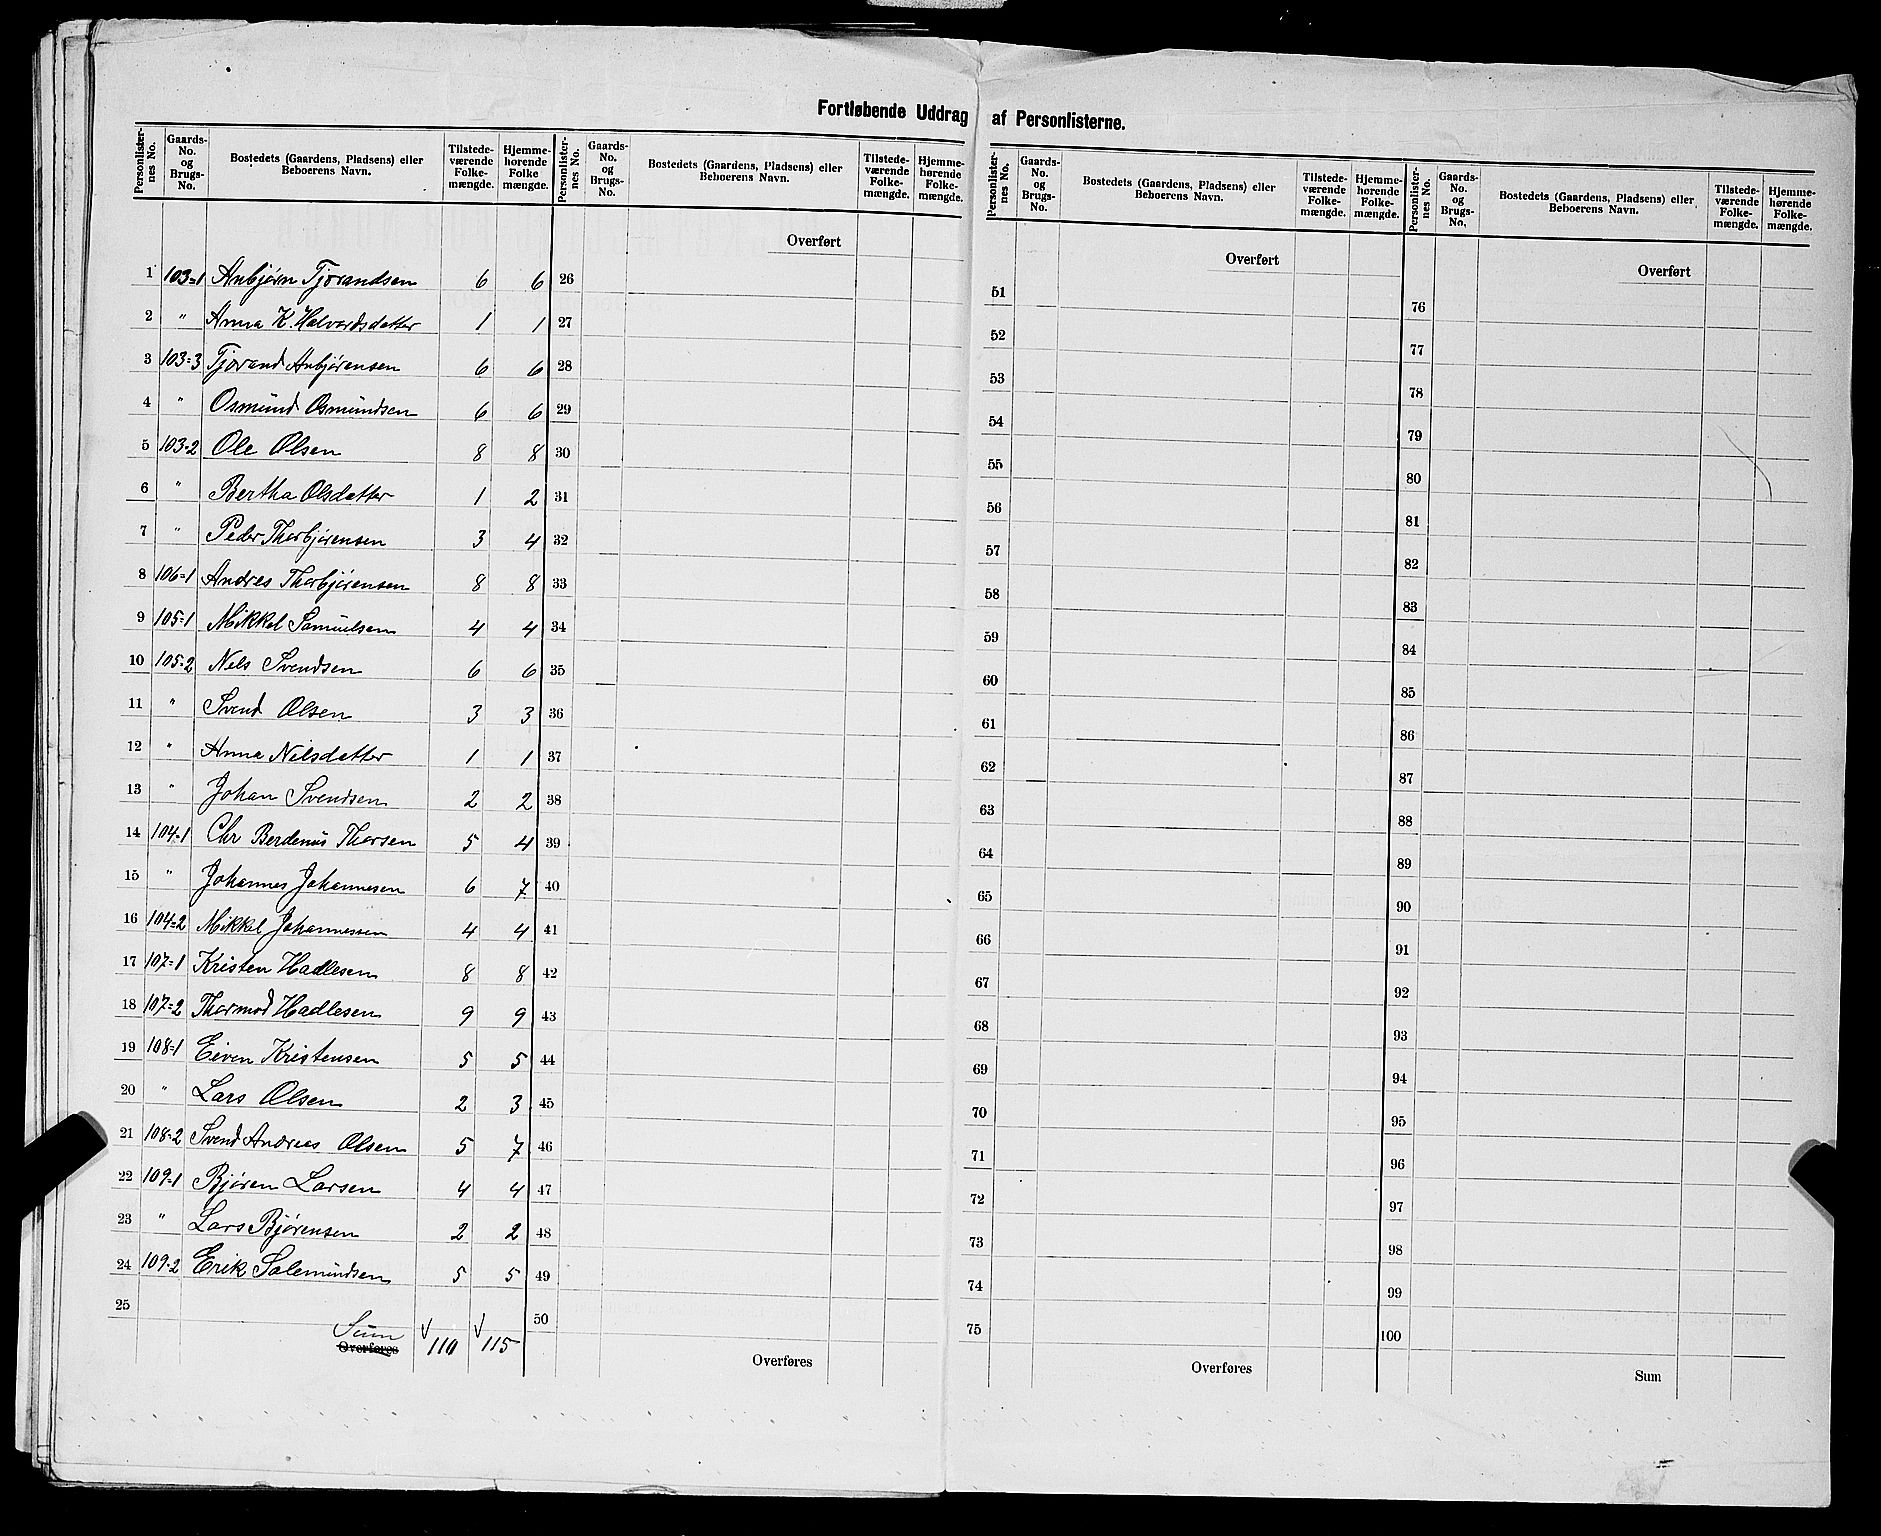 Fortløbende Uddrag af Personlisterne.
Personlisternes No. | Gaards-No. og Brugs-No. | Bostedets (Gaardens, Pladsens) eller Beboerens Navn. | Tilstedeværende Folkemængde. | Hjemmehørende Folkemængde.
1 103=1 Anbjørn Tjorandsen 6 6
2 " Anna K. Halvardsdatter 1 1
3 103=3 Tjorand Anbjørensen 6 6
4 " Osmund Osmundsen 6 6
5 103=2 Ole Olsen 8 8
6 " Bertha Olsdatter 1 2
7 " Peder Thorbjørensen 3 4
8 106=1 Andres Thorbjørensen 8 8
9 105=1 Mikkel Samuelsen 4 4
10 105=2 Nels Svendsen 6 6
11 " Svend Olsen 3 3
12 " Anna Nilsdatter 1 1
13 " Johan Svendsen 2 2
14 104=1 Chr Berdenus Thorsen 5 4
15 " Johannes Johannesen 6 7
16 104=2 Mikkel Johannessen 4 4
17 107=1 Kristen Hadlesen 8 8
18 107=2 Thormod Hadlesen 9 9
19 108=1 Eiven Kristensen 5 5
20 " Lars Olsen 2 3
21 108=2 Svend Andreas Olsen 5 7
22 109=1 Bjøren Larsen 4 4
23 " Lars Bjørensen 2 2
24 109=2 Erik Salemundsen 5 5
25
Sum
Overføres 110 115
Personlisternes No. | Gaards-No. og Brugs-No. | Bostedets (Gaardens, Pladsens) eller Beboerens Navn. | Tilstedeværende Folkemængde. | Hjemmehørende Folkemængde.
Overført
26
27
28
29
30
31
32
33
34
35
36
37
38
39
40
41
42
43
44
45
46
47
48
49
50
Overføres
Personlisternes No. | Gaards-No. og Brugs-No. | Bostedets (Gaardens, Pladsens) eller Beboerens Navn. | Tilstedeværende Folkemængde. | Hjemmehørende Folkemængde.
Overført
51
52
53
54
55
56
57
58
59
60
61
62
63
64
65
66
67
68
69
70
71
72
73
74
75
Overføres
Personlisternes No. | Gaards-No. og Brugs-No. | Bostedets (Gaardens, Pladsens) eller Beboerens Navn. | Tilstedeværende Folkemængde. | Hjemmehørende Folkemængde.
Overført
76
77
78
79
80
81
82
83
84
85
86
87
88
89
90
91
92
93
94
95
96
97
98
99
100
Sum